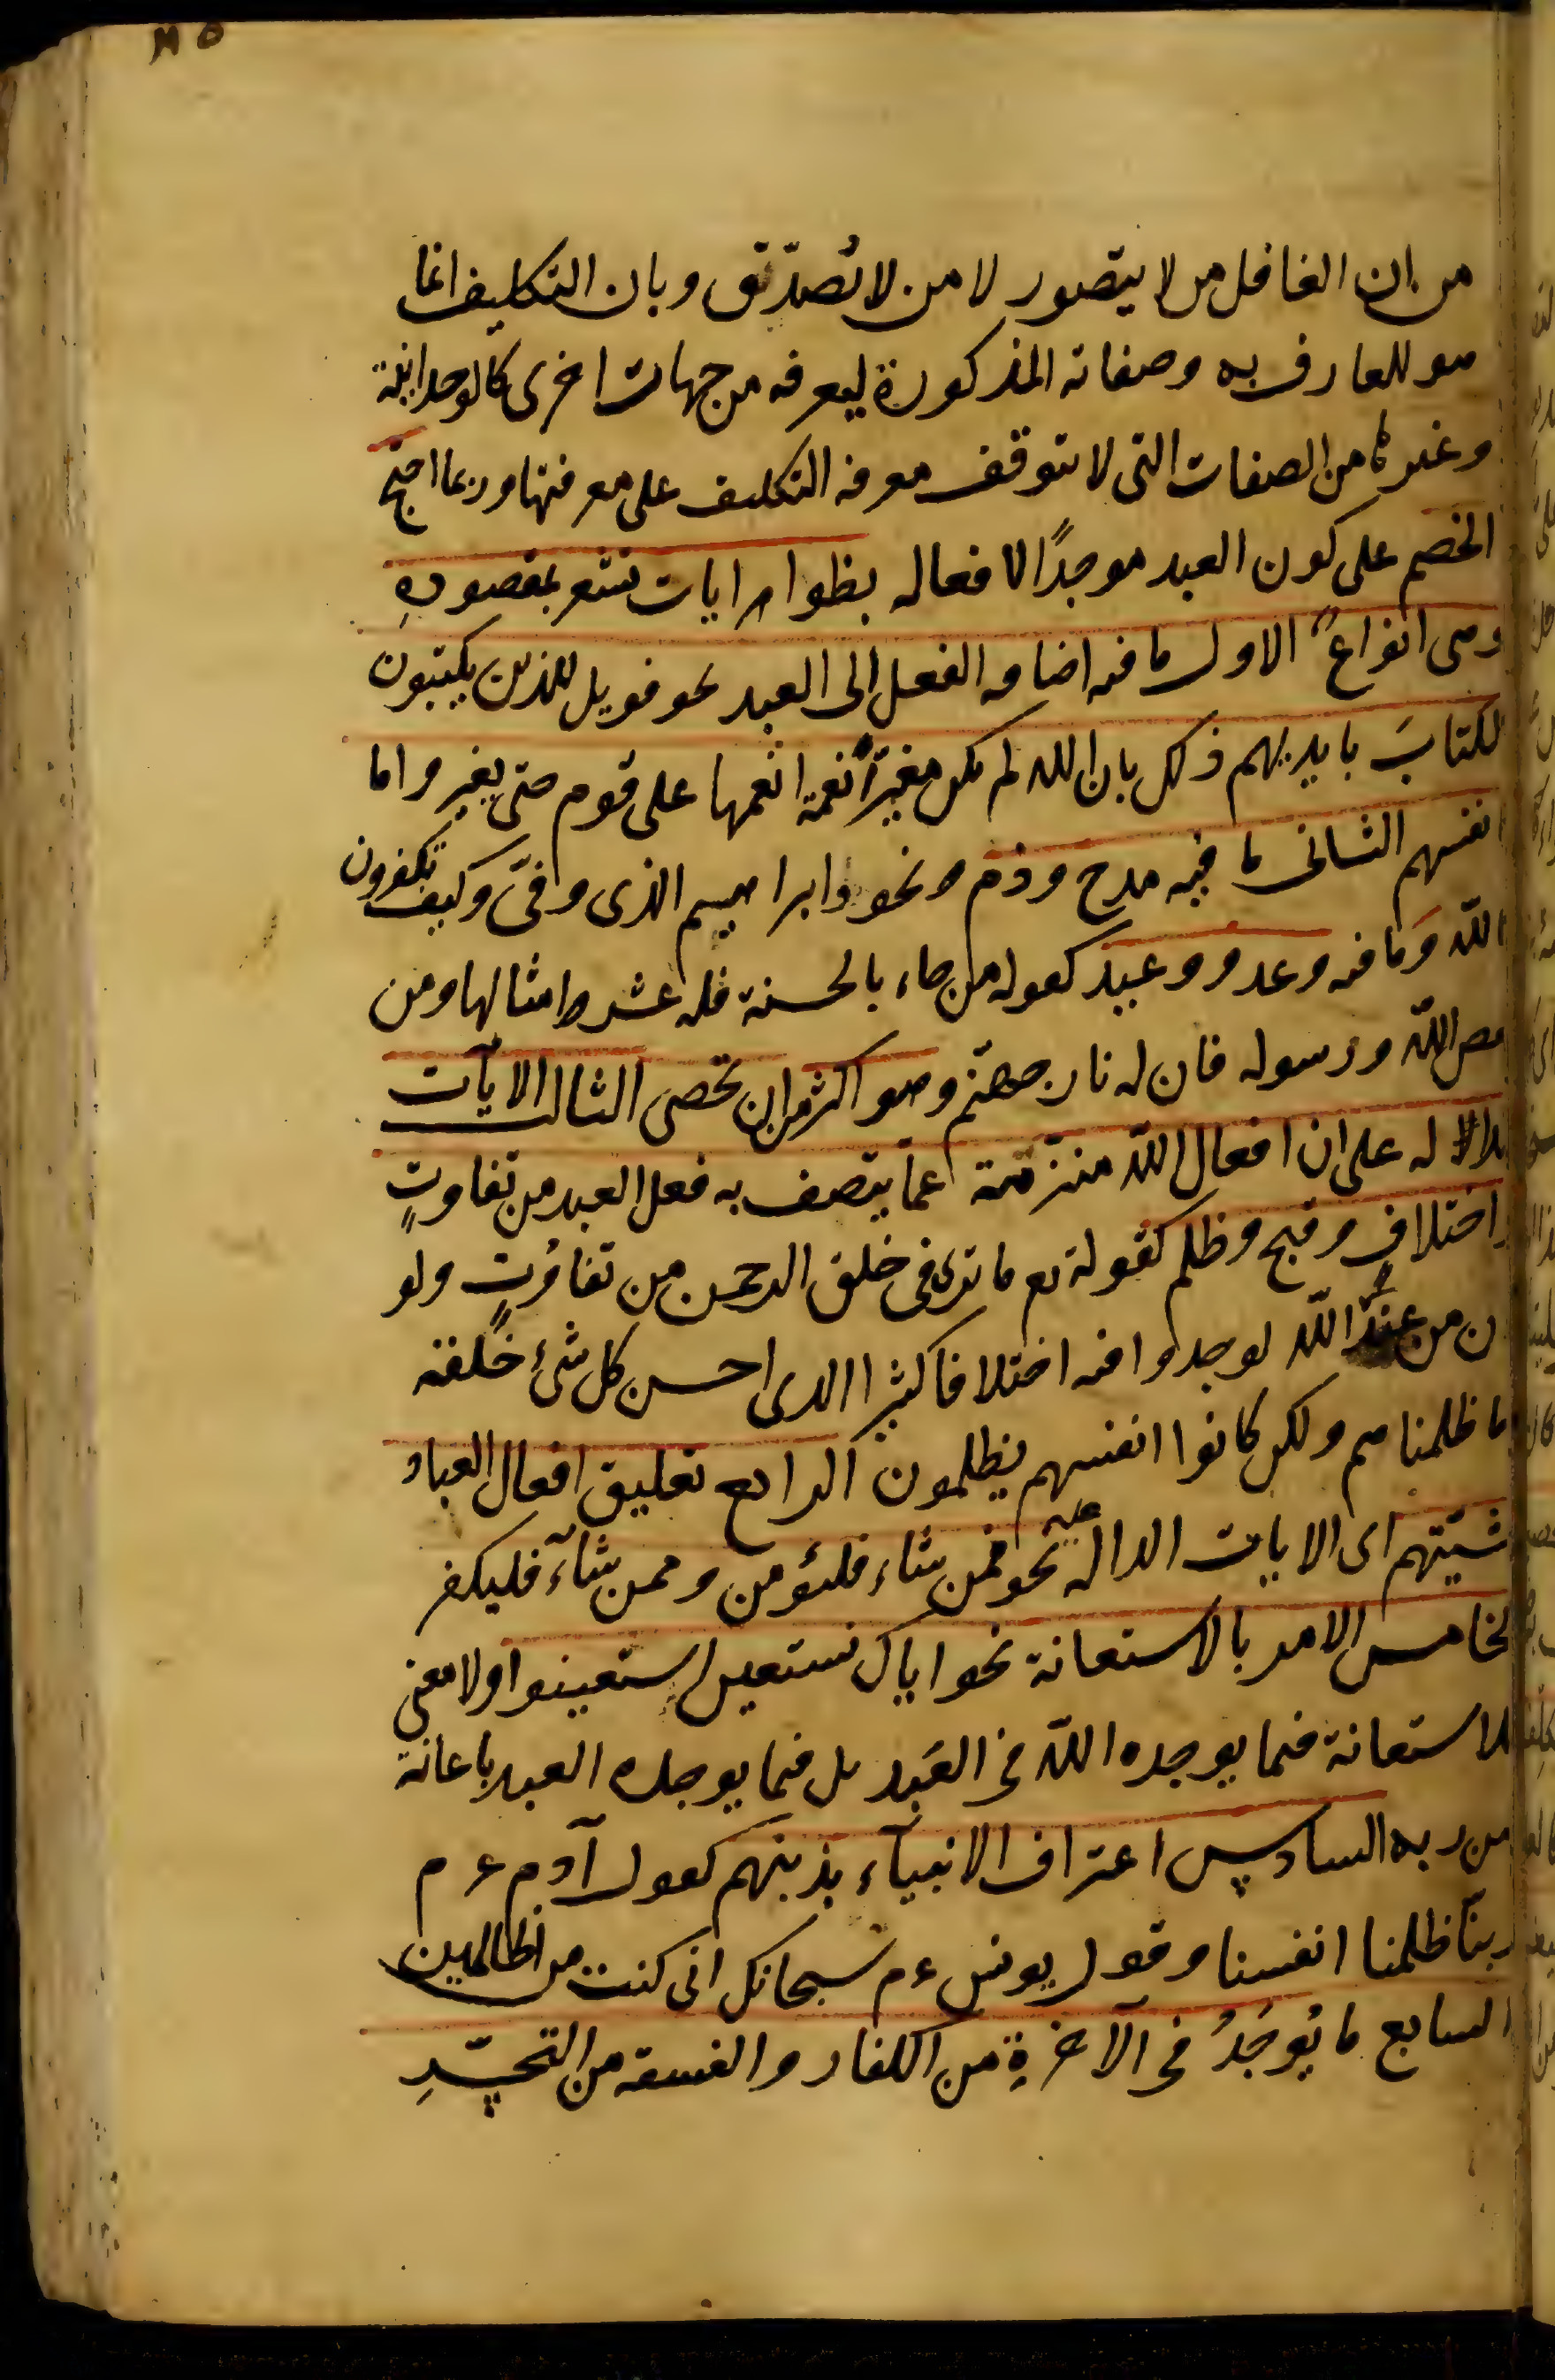 من ان الغافل من لا يتصور لا من لا تُصدّق وبان التكليف انما
هو للعارف به وصفاته المذكورة ليعرفه من جهات اخرى كالوحدانية
وغيرها من الصفات التى لا تتوقف معرفة التكليف على معرفتها وربما احتج
الخصم على كون العبد موجدًا لافعاله بظواهر ايات تشعر بمقصودهِ
وهى انواعٌ الاول ما فيه اضافة الفعل الى العبد نحو فويل للذين يكتبون
الكتابَ بايديهم ذلك بان الله لم يكن مغيرًا نعمة انعمها على قوم حتى يغيروا ما
بانفسهم الثانى ما فيه مدح وذم ونحو وابراهيم الذى وفىّ وكيف تكفرون
بالله وَما فيه وعد ووعيد كقوله من جاء بالحسنة فله عشر امثالها ومن
يعص اللّه ورسوله فان له نار جهنّم وهو اكثر من ان تحصى الثالث الآيات
الدالة على ان افعال اللّه منزّهة عما يتصف به فعل العبد من تفاوتٍ
واختلافٍ وقبح وظلم كقوله تع ما ترى فى خلق الرحمن من تفاوُتٍ ولو
كان من عند غير اللّه لوجدوا فيه اختلافا كثيرا الذى احسن كل شئ خلقه
وما ظلمناهم ولكن كانوا انفسهم يظلمون الرابع تعليق افعال العباد
بمشيّتهم اى الايات الدالة عليه نحو فمن شاء فليؤمن وممن شآء فليكفر
الخامس الامر بالاستعانة نحو اياك نستعين استعينوا ولا معنى
للاستعانة فيما يوجده اللّه فى العَبد بل فيما يوجده العبد باعانة
من ربه السادس اعتراف الانبيآء بذنبهم كقول آدم ع م
ربنّا ظلمنا انفسنا وقول يونس ع م سبحانك انى كنت من الظالمين
السابع ما يُوجَدُ فى الآخرةِ من الكفار والفسقة من التحسّرِ